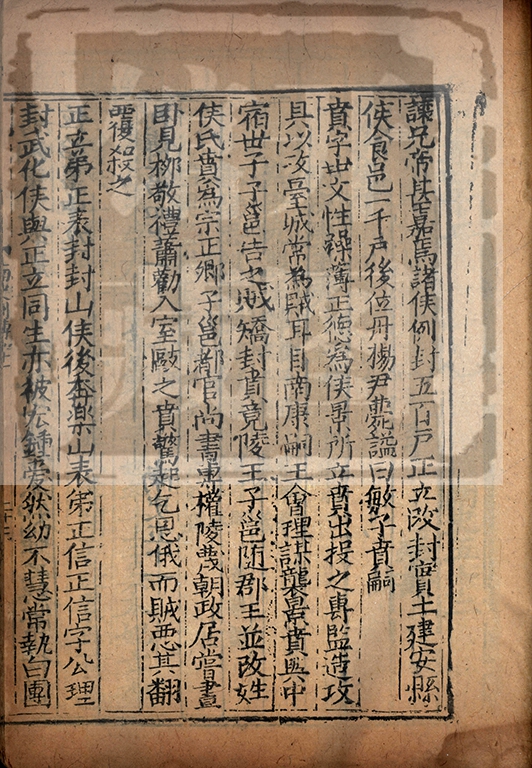 諫兄帝甚嘉焉諸侯例封五百戶正立改封實土建安縣
侯食邑一千戶後位丹楊尹薨謚曰敏子賁嗣
賁字世文性躁薄正德為侯景所立賁出投之專監造攻
具以攻臺城常為賊耳目南康嗣王會理謀襲景賁與中
宿世子子邕告之賊矯封賁竟陵王子邕隨郡王並改姓
侯氏賁為宗正卿子邕都官尚書專權陵蔑朝政居嘗晝
臥見柳敬禮蕭勸入室毆之賁驚疑乞恩俄而賊惡其翻
覆殺之
正立弟正表封封山侯後奔樂山表弟正信正信字公理
封武化侯與正立同生亦被宏鍾愛然幼不慧常執白團